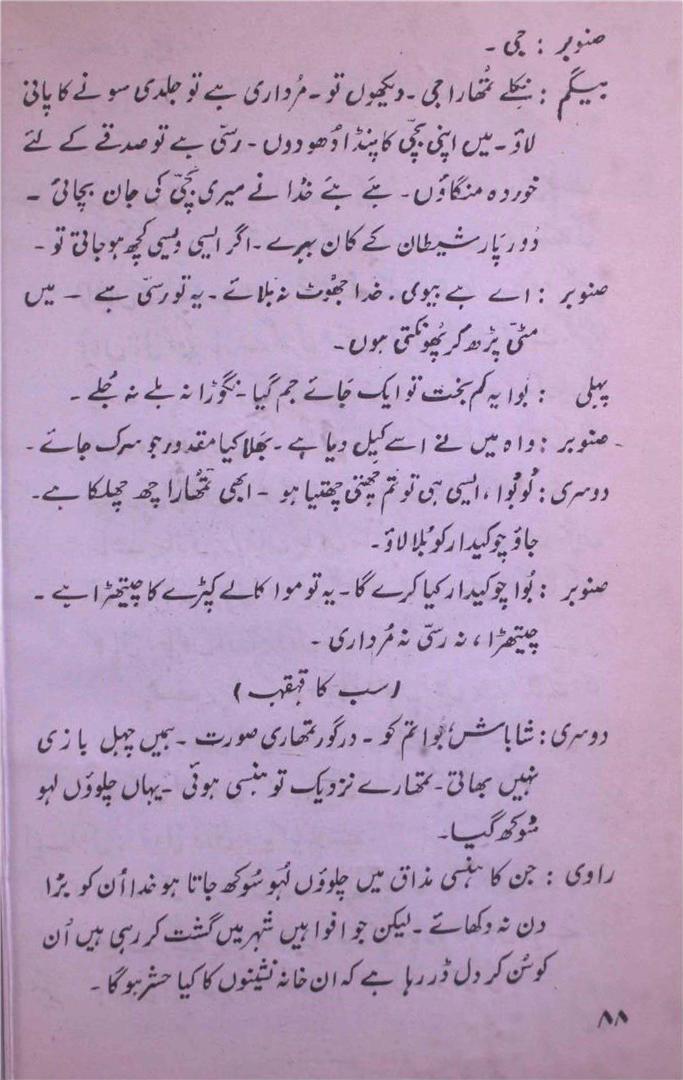 صنوبر : جی ۔
بیگم : نکلے تمُھارا جی ۔ دیکھوں تو ۔ مُرداری ہے تو جلدی سونے کا پانی
لاؤ ۔ میں اپنی بچّی کا پنڈا دُھو دوں ۔ رسّی ہے تو صدقے کے لئے
خوردہ منگاؤں ۔ ہے ہے خُدا نے میری بچّی کی جان بچائی ۔
دُور پَار شیطان کے کان بہرے ۔ اگر ایسی ویسی کچھ ہو جاتی تو ۔
صنوبر : اے ہے بیوی ۔ خدا جھُوٹ نہ بُلائے ۔ یہ تو رسّی ہے ۔ میں
مٹّی پڑھ کر پُھونکتی ہوں ۔
پہلی : بُوا یہ کم بخت تو ایک جَائے جم گیا ۔ نگوڑا نہ ہلے نہ جُلے ۔
صنوبر : واہ میں نے اسے کیل دیا ہے ۔ بھَلا کیا مقدور جو سرک جائے ۔
دوسری : لُو بُوا ، ایسی ہی تو تم چھنتی چھتیا ہو ۔ ابھی تمُھارا چھ چھلکا ہے ۔
جاؤ چوکیدار کو بُلا لاؤ ۔
صنوبر : بُوا چوکیدار کیا کرے گا ۔ یہ تو موا کالے کپڑے کا چیتھڑا ہے ۔
چیتھڑا ، نہ رسّی نہ مُرداری ۔
(سب کا قہقہہ)
دوسری : شاباش بُوا تم کو ۔ درگور تمھاری صورت ۔ ہمیں چہل بازی
نہیں بھاتی ۔ تمھارے نزدیک تو ہنسی ہوئی ۔ یہاں چلوؤں لہو
سُوکھ گیا ۔
راوی : جن کا ہنسی مذاق میں چلوؤں لہُو سُوکھ جاتا ہو خدا اُن کو بُرا
دن نہ دکھائے ۔ لیکن جو افواہیں شہر میں گشت کر رہی ہیں اُن
کو سُن کر دل ڈر رہا ہے کہ ان خانہ نشینوں کا کیا حشر ہو گا ۔
۸۸